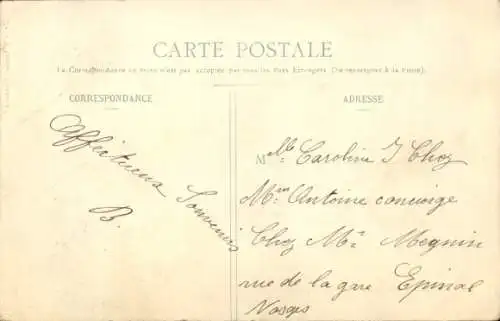 CARTE POSTALE
La Correspondance au recto n'est pas acceptée par tous les Pays Etrangers (Se renseigner à la Poste).
CORRESPONDANCE
Affectueux Souvenirs
B.
ADRESSE
Melle Caroline J Chez
Mme Antoine concierge
Chez Mr Megnin
rue de la gare Epinal
Vosges